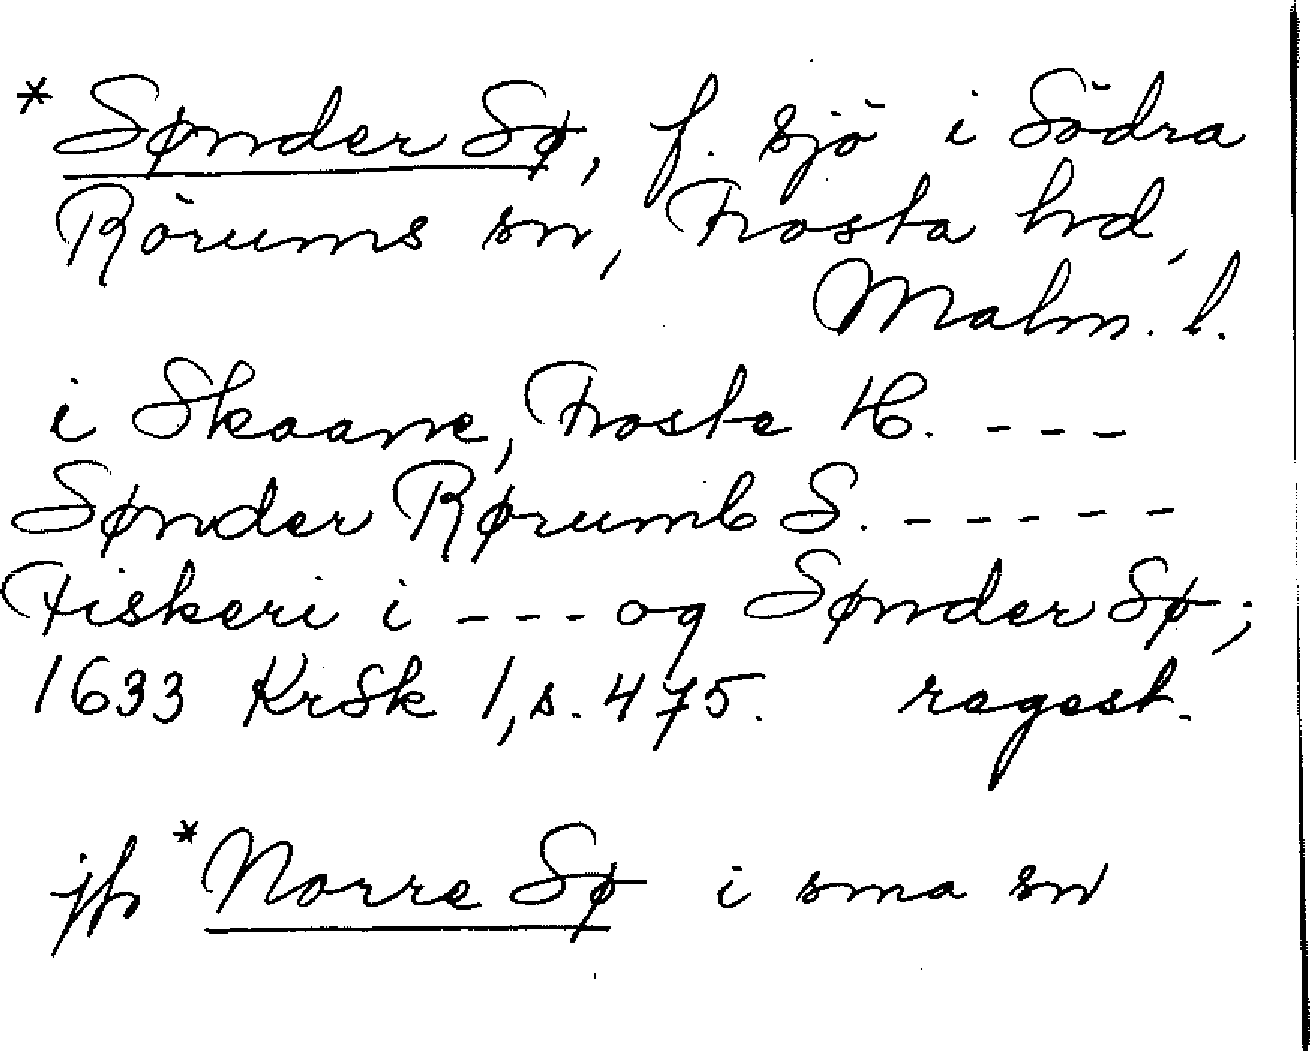 *Sønder Sø, f. sjö i Södra
Rörums sn, Frosta hd,
Malm. l.
i Skaane, Froste H. - - -
Sønder Rørumb S. - - - - -
Fiskeri i - - - og Sønder Sø;
1633 KrSk 1, s. 475. regest.
jfr *Norre Sø i sma sn